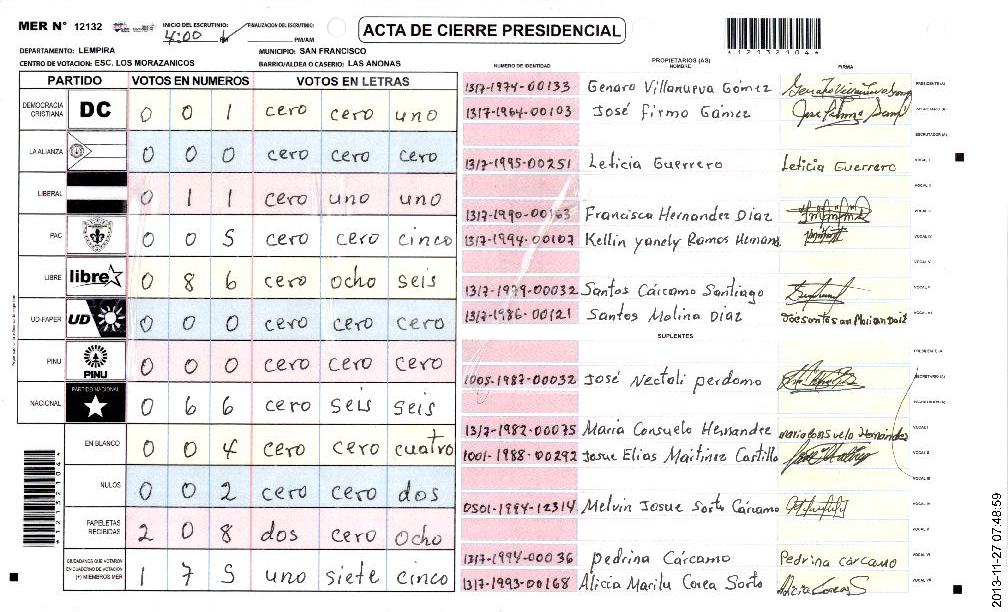 MER N° 12132
INICIO DEL ESCRUTINIO:
4:00
FINALIZACION DEL ESCRUTINIO:
PM/AM
ACTA DE CIERRE PRESIDENCIAL
*12132104*
DEPARTAMENTO: LEMPIRA
MUNICIPIO: SAN FRANCISCO
CENTRO DE VOTACION: ESC. LOS MORAZANICOS
BARRIO/ALDEA O CASERIO: LAS ANONAS
PARTIDO VOTOS EN NUMEROS VOTOS EN LETRAS
DEMOCRACIA CRISTIANA DC 0 0 1 cero cero uno
LA ALIANZA 0 0 0 cero cero cero
LIBERAL 0 1 1 cero uno uno
PAC 0 0 5 cero cero cinco
LIBRE libre 0 8 6 cero ocho seis
UD-FAPER UD 0 0 0 cero cero cero
PINU PINU 0 0 0 cero cero cero
NACIONAL PARTIDO NACIONAL 0 6 6 cero seis seis
EN BLANCO 0 0 4 cero cero cuatro
NULOS 0 0 2 cero cero dos
PAPELETAS RECIBIDAS 2 0 8 dos cero ocho
CIUDADANOS QUE VOTARON EN CUADERNO DE VOTACION (+) MIEMBROS MER 1 7 5 uno siete cinco
*12132104*
NUMERO DE IDENTIDAD
PROPIETARIOS (AS)
NOMBRE
FIRMA
1317-1974-00133 Genaro Villanueva Gómez PRESIDENTE (A)
1317-1964-00103 José Firmo Gámez
ESCRUTADOR (A)
1317-1995-00251 Leticia Guerrero Leticia Guerrero VOCAL I
VOCAL II
1317-1990-00163 Francisca Hernandez Diaz VOCAL III
1317-1994-00107 Kellin yanely Ramos VOCAL IV
VOCAL V
1317-1979-00032 Santos Cárcamo Santiago
1317-1986-00121 Santos Molina Diaz
SUPLENTES
PRESIDENTE (A)
1005-1987-00032 José Nectoli perdomo SECRETARIO (A)
1317-1982-00075 Maria Consuelo Hernandez maria consuelo Hernández VOCAL I
1001-1988-00292 Josue Elias Maitinez Castillo VOCAL II
VOCAL III
0501-1994-12314 Melvin Josue Sorto Cárcamo VOCAL IV
VOCAL V
1317-1994-00036 pedrina Cárcamo Pedrina carcamo VOCAL VI
1317-1993-00168 Alicia Marilu Corea Sorto VOCAL VII
2013-11-27 07:48:59